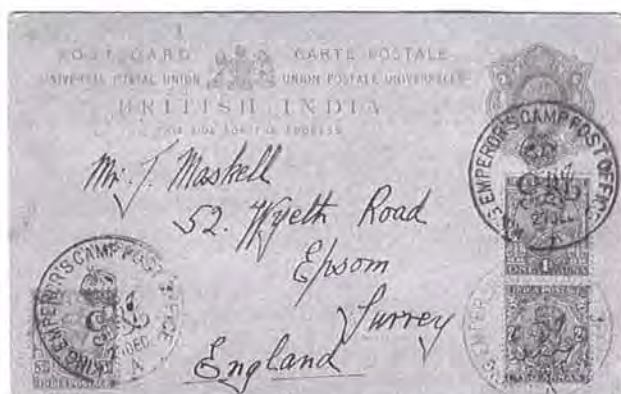 POST CARD CARTE POSTALE
UNIVERSAL POSTAL UNION UNION POSTALE UNIVERSELLE
BRITISH INDIA
THIS SIDE FOR THE ADDRESS
Mr. J. Maskell
52. Wyeth Road
Epsom
Surrey
England
KING EMPEROR'S CAMP POST OFFICE
21 DEC
ONE ANNA
INDIA POSTAGE
KING EMPEROR'S CAMP POST OFFICE
DEC
A
INDIA POSTAGE